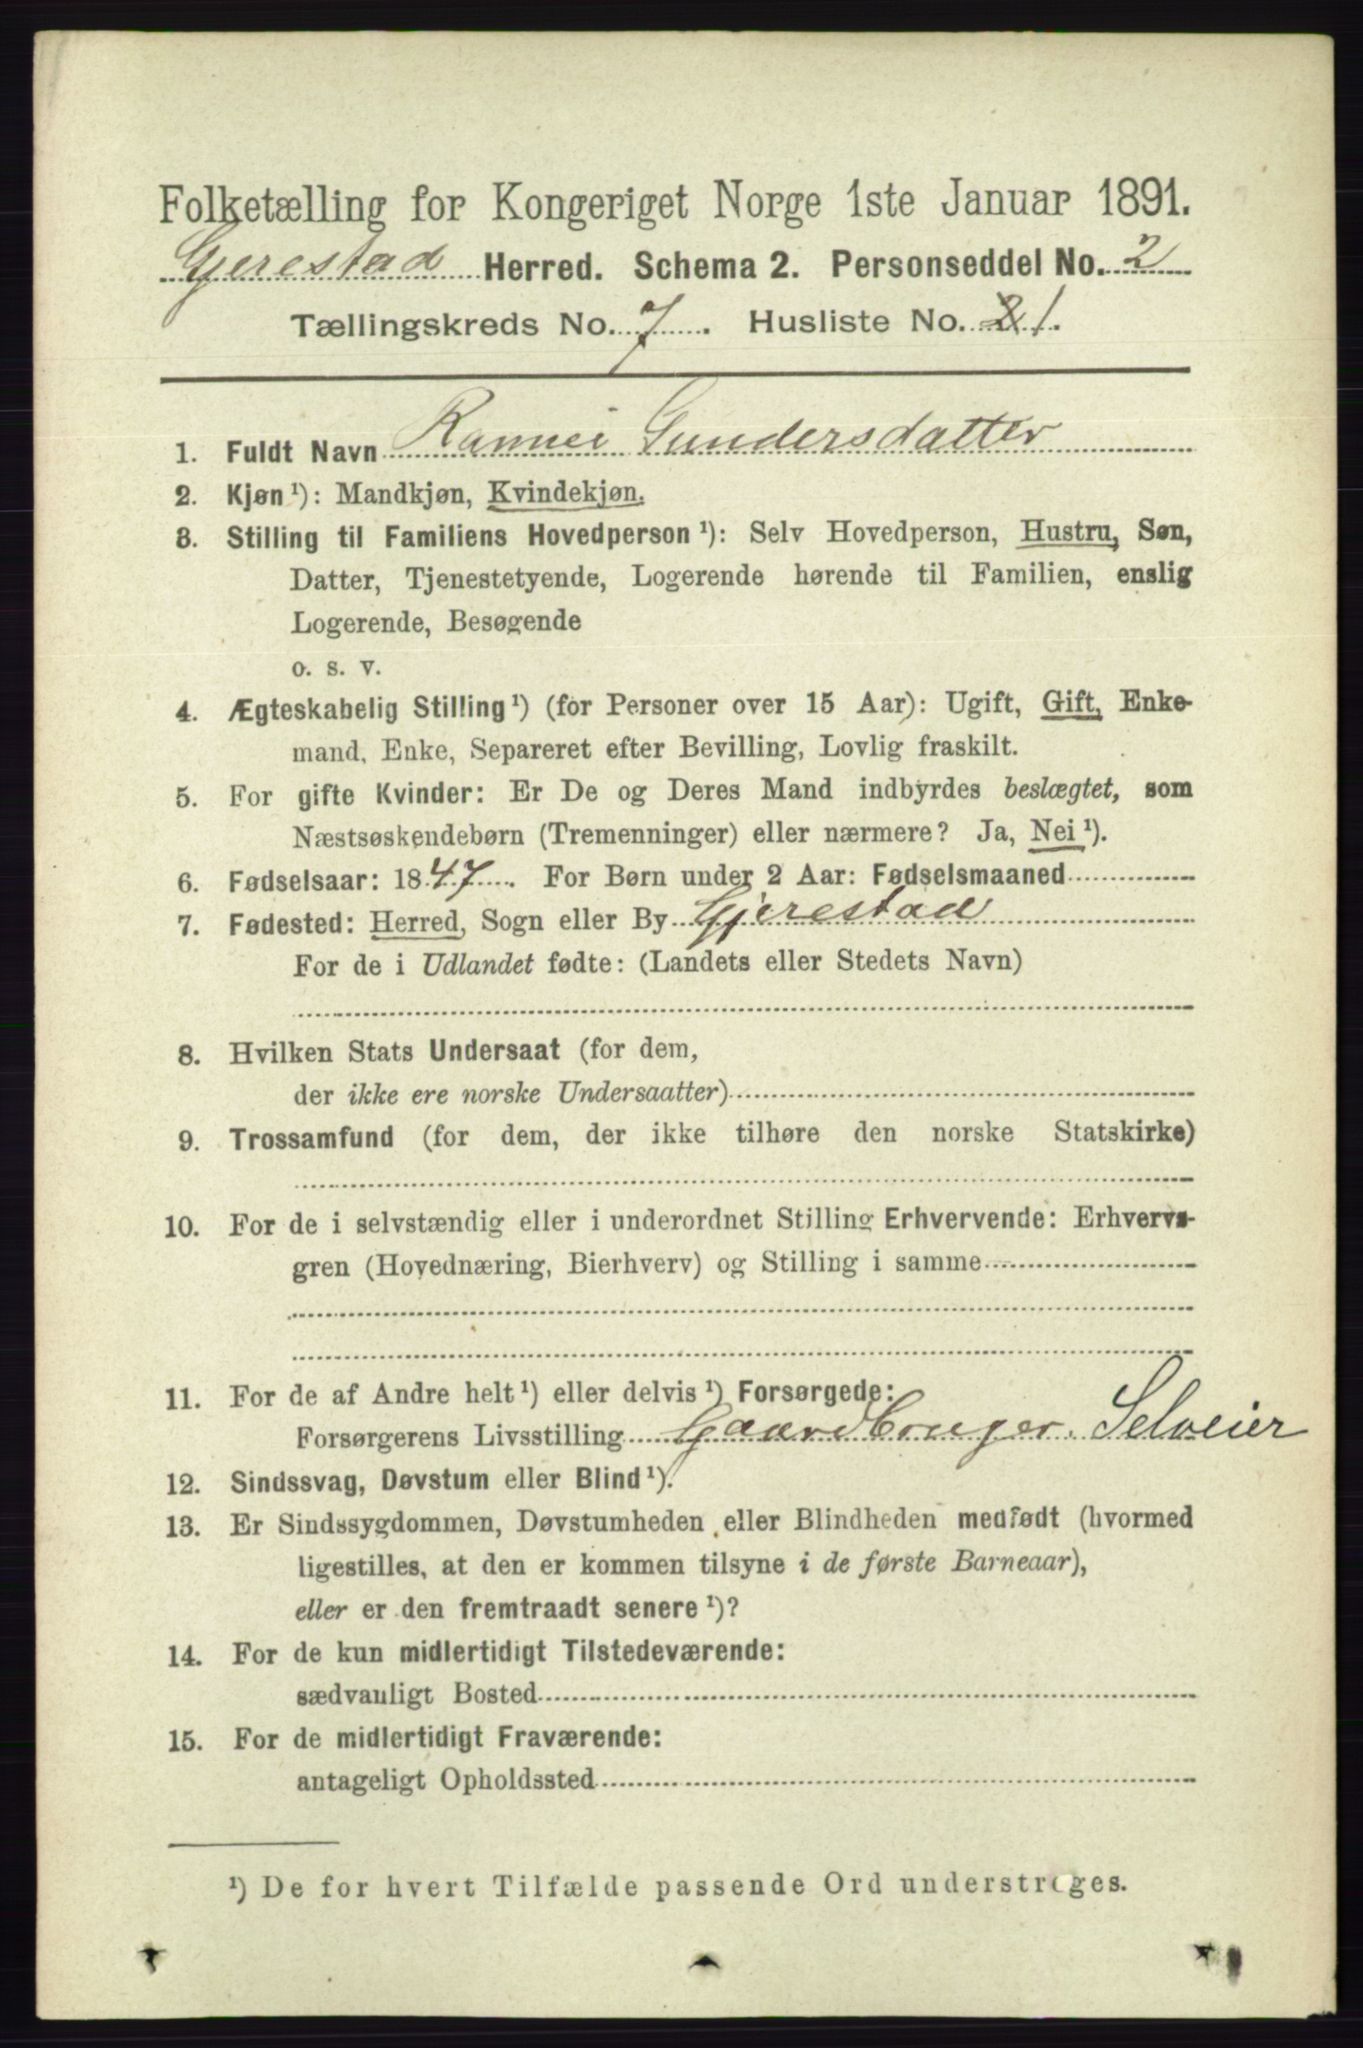 Folketælling for Kongeriget Norge 1ste Januar 1891.
Gjerestad Herred. Schema 2. Personseddel No. 2
Tællingskreds No. 7. Husliste No. 1.
1. Fuldt Navn Rannei Gundersdatter
2. Kjøn ¹): Mandkjøn, Kvindekjøn.
3. Stilling til Familiens Hovedperson ¹): Selv Hovedperson, Hustru, Søn,
Datter, Tjenestetyende, Logerende hørende til Familien, enslig
Logerende, Besøgende
o. s. v.
4. Ægteskabelig Stilling ¹) (for Personer over 15 Aar): Ugift, Gift, Enke-
mand, Enke, Separeret efter Bevilling, Lovlig fraskilt.
5. For gifte Kvinder: Er De og Deres Mand indbyrdes beslægtet, som
Næstsøskendebørn (Tremenninger) eller nærmere? Ja, Nei ¹).
6. Fødselsaar: 1847. For Børn under 2 Aar: Fødselsmaaned
7. Fødested: Herred, Sogn eller By Gjerestad
For de i Udlandet fødte: (Landets eller Stedets Navn)
8. Hvilken Stats Undersaat (for dem,
der ikke ere norske Undersaatter)
9. Trossamfund (for dem, der ikke tilhøre den norske Statskirke)
10. For de i selvstændig eller i underordnet Stilling Erhvervende: Erhvervs-
gren (Hovednæring, Bierhverv) og Stilling i samme
11. For de af Andre helt ¹) eller delvis ¹) Forsørgede:
Forsørgerens Livsstilling Gaardbruger. Selveier
12. Sindssvag, Døvstum eller Blind ¹).
13. Er Sindssygdommen, Døvstumheden eller Blindheden medfødt (hvormed
ligestilles, at den er kommen tilsyne i de første Barneaar),
eller er den fremtraadt senere ¹)?
14. For de kun midlertidigt Tilstedeværende:
sædvanligt Bosted
15. For de midlertidigt Fraværende:
antageligt Opholdssted
¹) De for hvert Tilfælde passende Ord understreges.